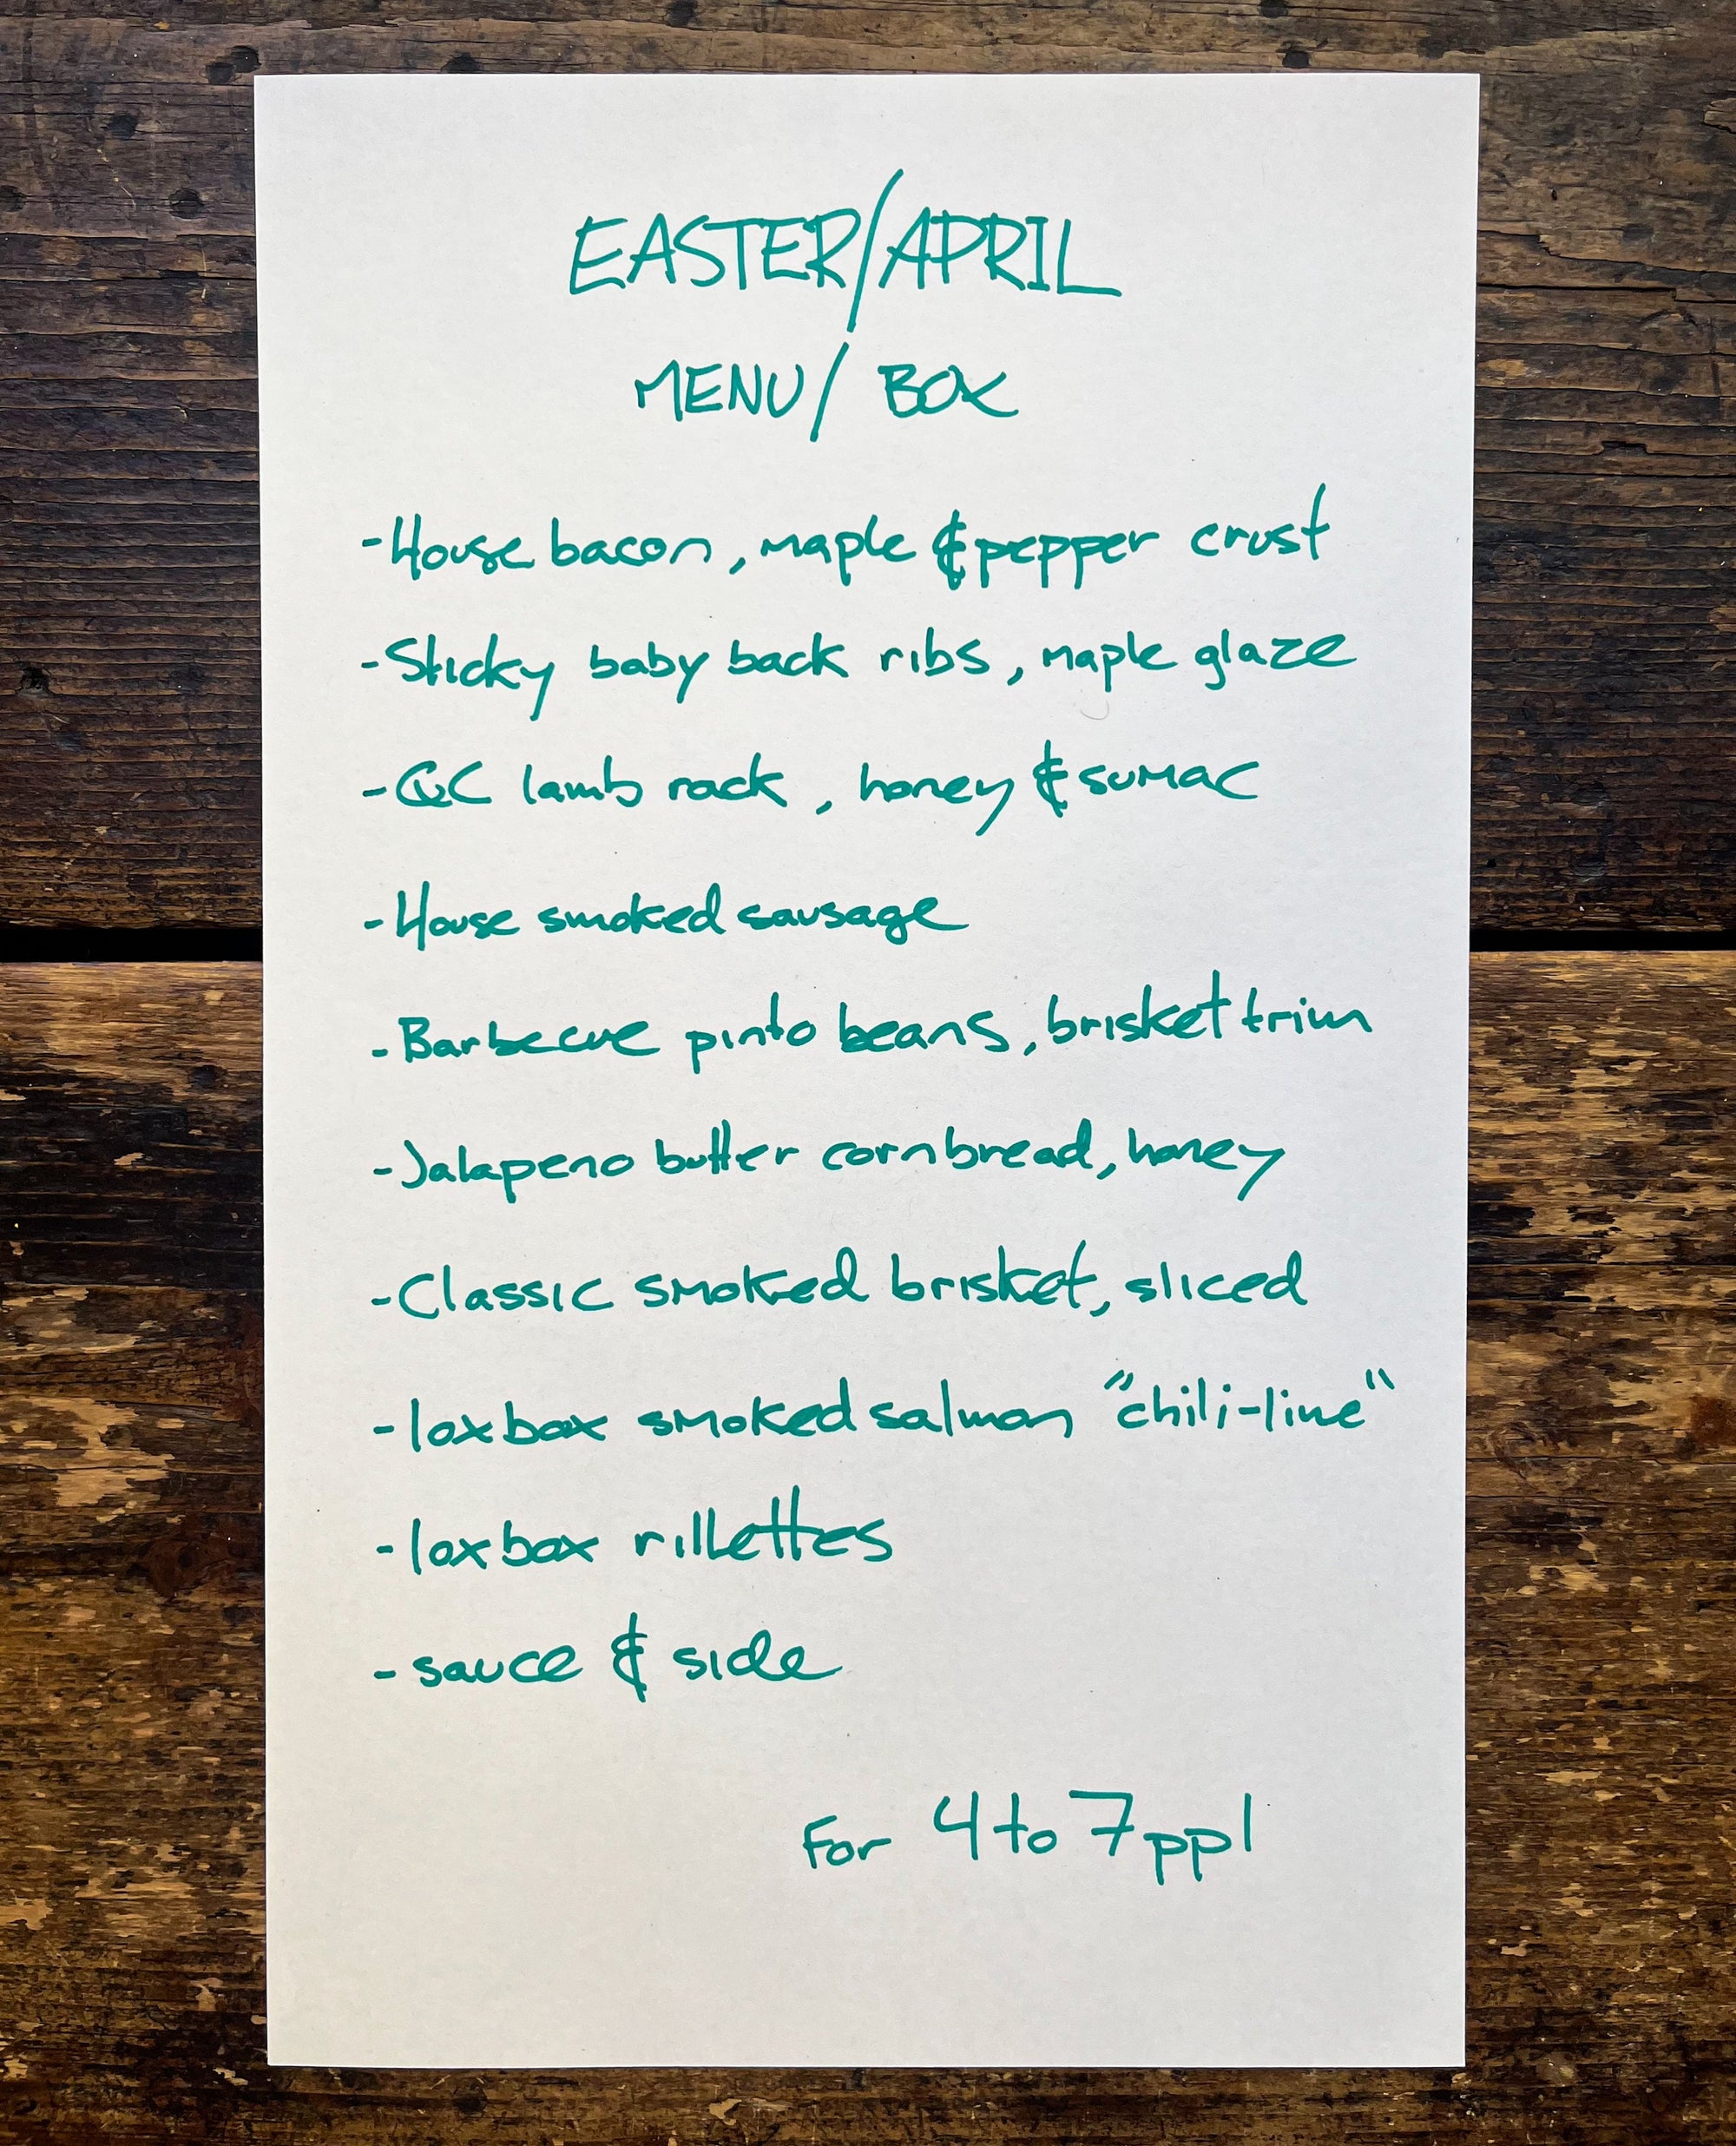 EASTER/APRIL
MENU/ BOX
- House bacon, maple & pepper crust
- Sticky baby back ribs, maple glaze
- QC lamb rack, honey & sumac
- House smoked sausage
- Barbecue pinto beans, brisket trim
- Jalapeno butter cornbread, honey
- Classic smoked brisket, sliced
- loxbox smoked salmon "chili-lime"
- loxbox rillettes
- sauce & side
For 4 to 7 ppl